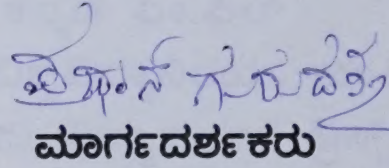 ಪ್ರಧಾನ ಗುರುದತ್ತ
ಮಾರ್ಗದರ್ಶಕರು